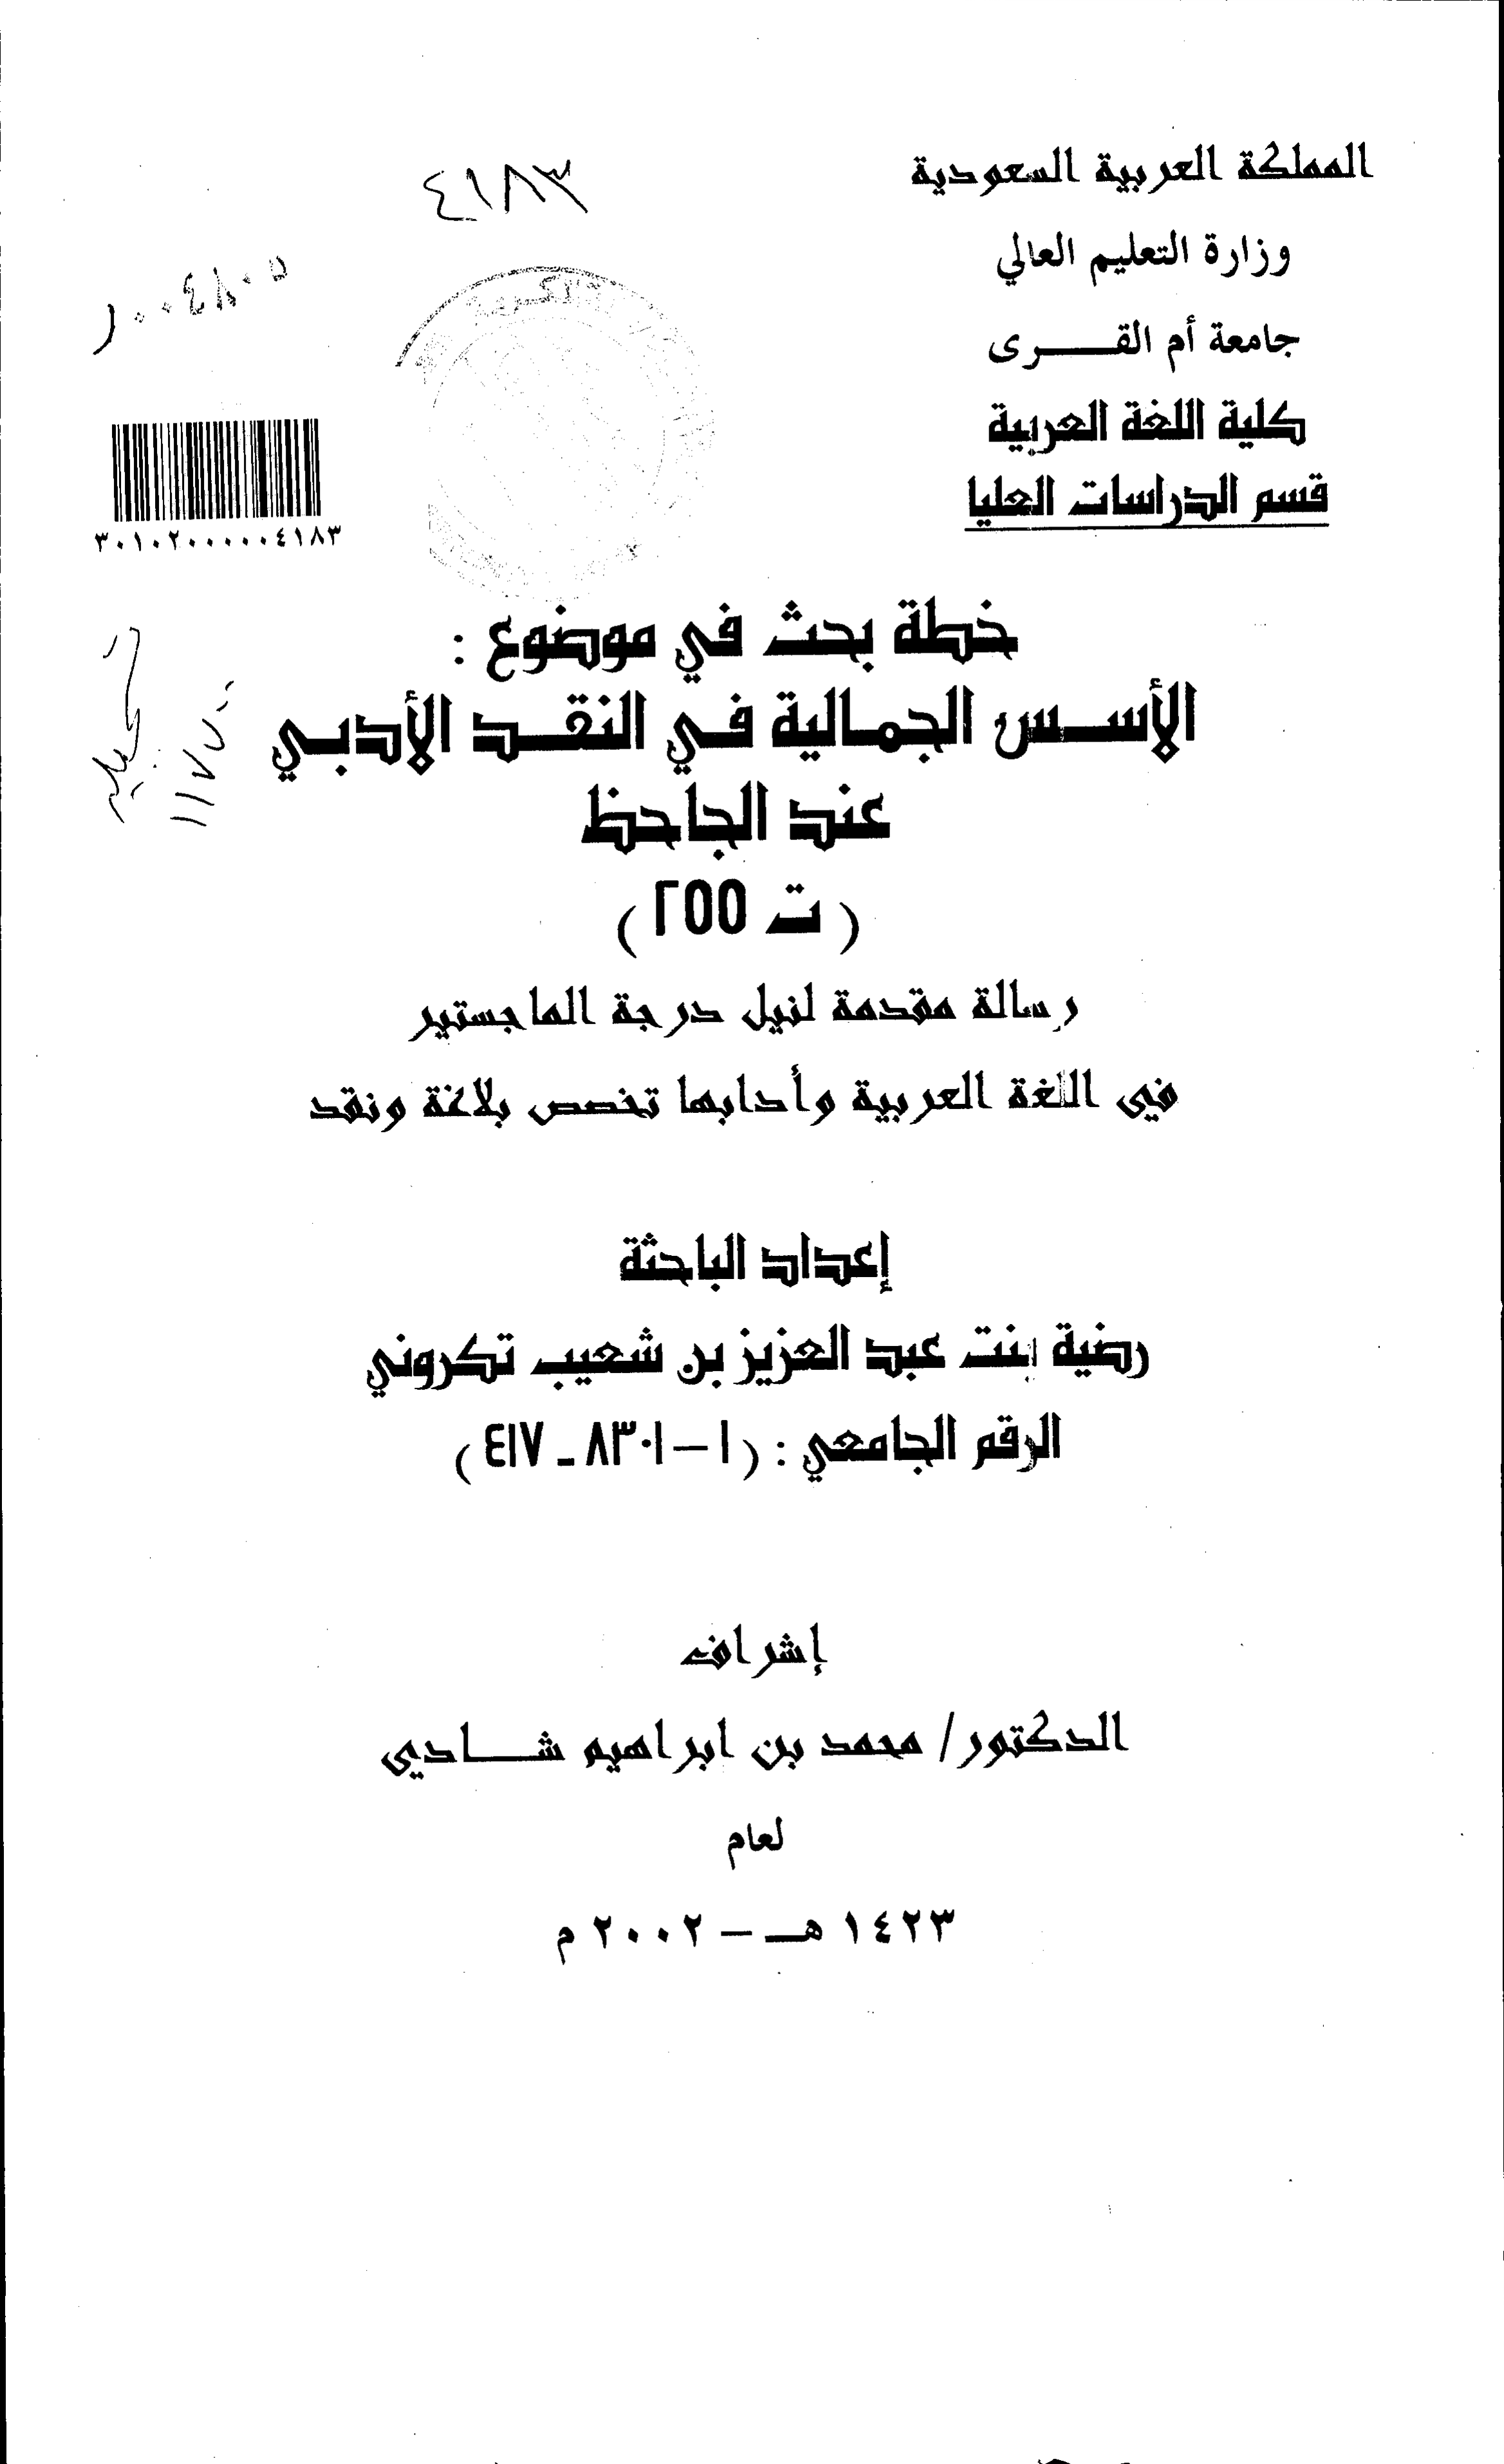 المملكة العربية السعودية
وزارة التعليم العالي
جامعة أم القــــرى
كلية اللغة العربية
قسم الدراسات العليا
٤١٨٣
٣٠١٠٢٠٠٠٠٠٤١٨٣
خطة بحث في موضوع :
الأســس الجمـالية فـي النقــد الأدبـي
عند الجاحظ
( ت ٢٥٥ )
رسالة مقدمة لنيل درجة الماجستير
في اللغة العربية وأدابها تخصص بلاغة ونقد
إعداد الباحثة
رضية بنت عبد العزيز بن شعيب تكروني
الرقم الجامعي : ( ١ – ٨٣٠١ - ٤١٧ )
إشراف
الدكتور/ محمد بن ابراهيم شـــادي
لعام
١٤٢٣ هــ – ٢٠٠٢ م